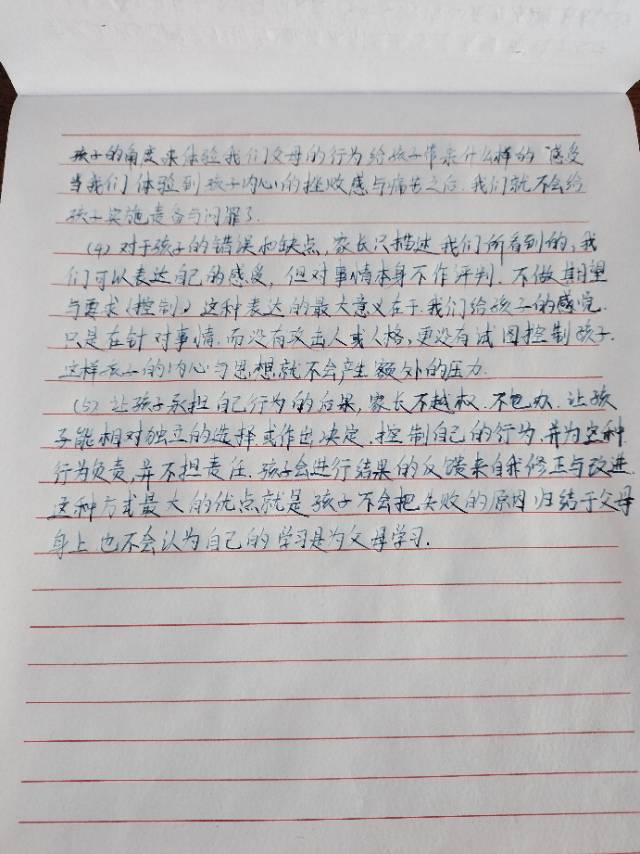 孩子的角度来体验我们父母的行为给孩子带来什么样的感受
当我们体验到孩子内心的挫败感与痛苦之后.我们就不会给
孩子实施责备与问罪了.
(4)对于孩子的错误和缺点,家长只描述我们所看到的,我
们可以表达自己的感受,但对事情本身不作评判.不做期望
与要求(控制)这种表达的最大意义在于.我们给孩子的感觉.
只是在针对事情.而没有攻击人或人格,更没有试图控制孩子.
这样孩子的内心与思想就不会产生额外的压力.
(5)让孩子承担自己行为的后果,家长不越权.不包办.让孩
子能相对独立的选择或作出决定.控制自己的行为.并为这种
行为负责,并不担责任.孩子会进行结果的反馈来自我修正与改进.
这种方式最大的优点就是孩子不会把失败的原因归结于父母
身上也不会认为自己的学习是为父母学习.